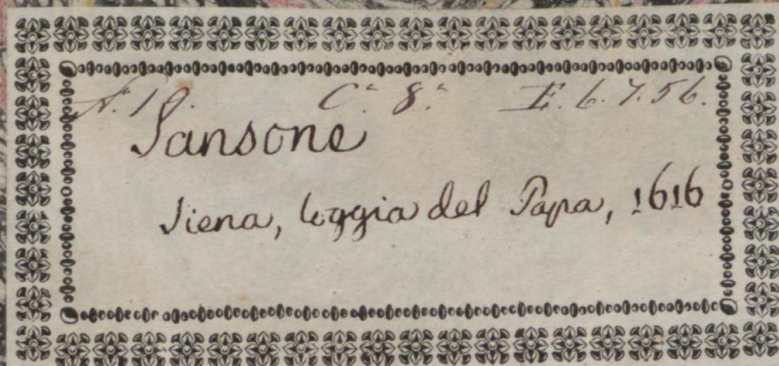 A. 10. C. 8. E. 6. 7. 56.
Sansone
Siena, loggia del Papa, 1616